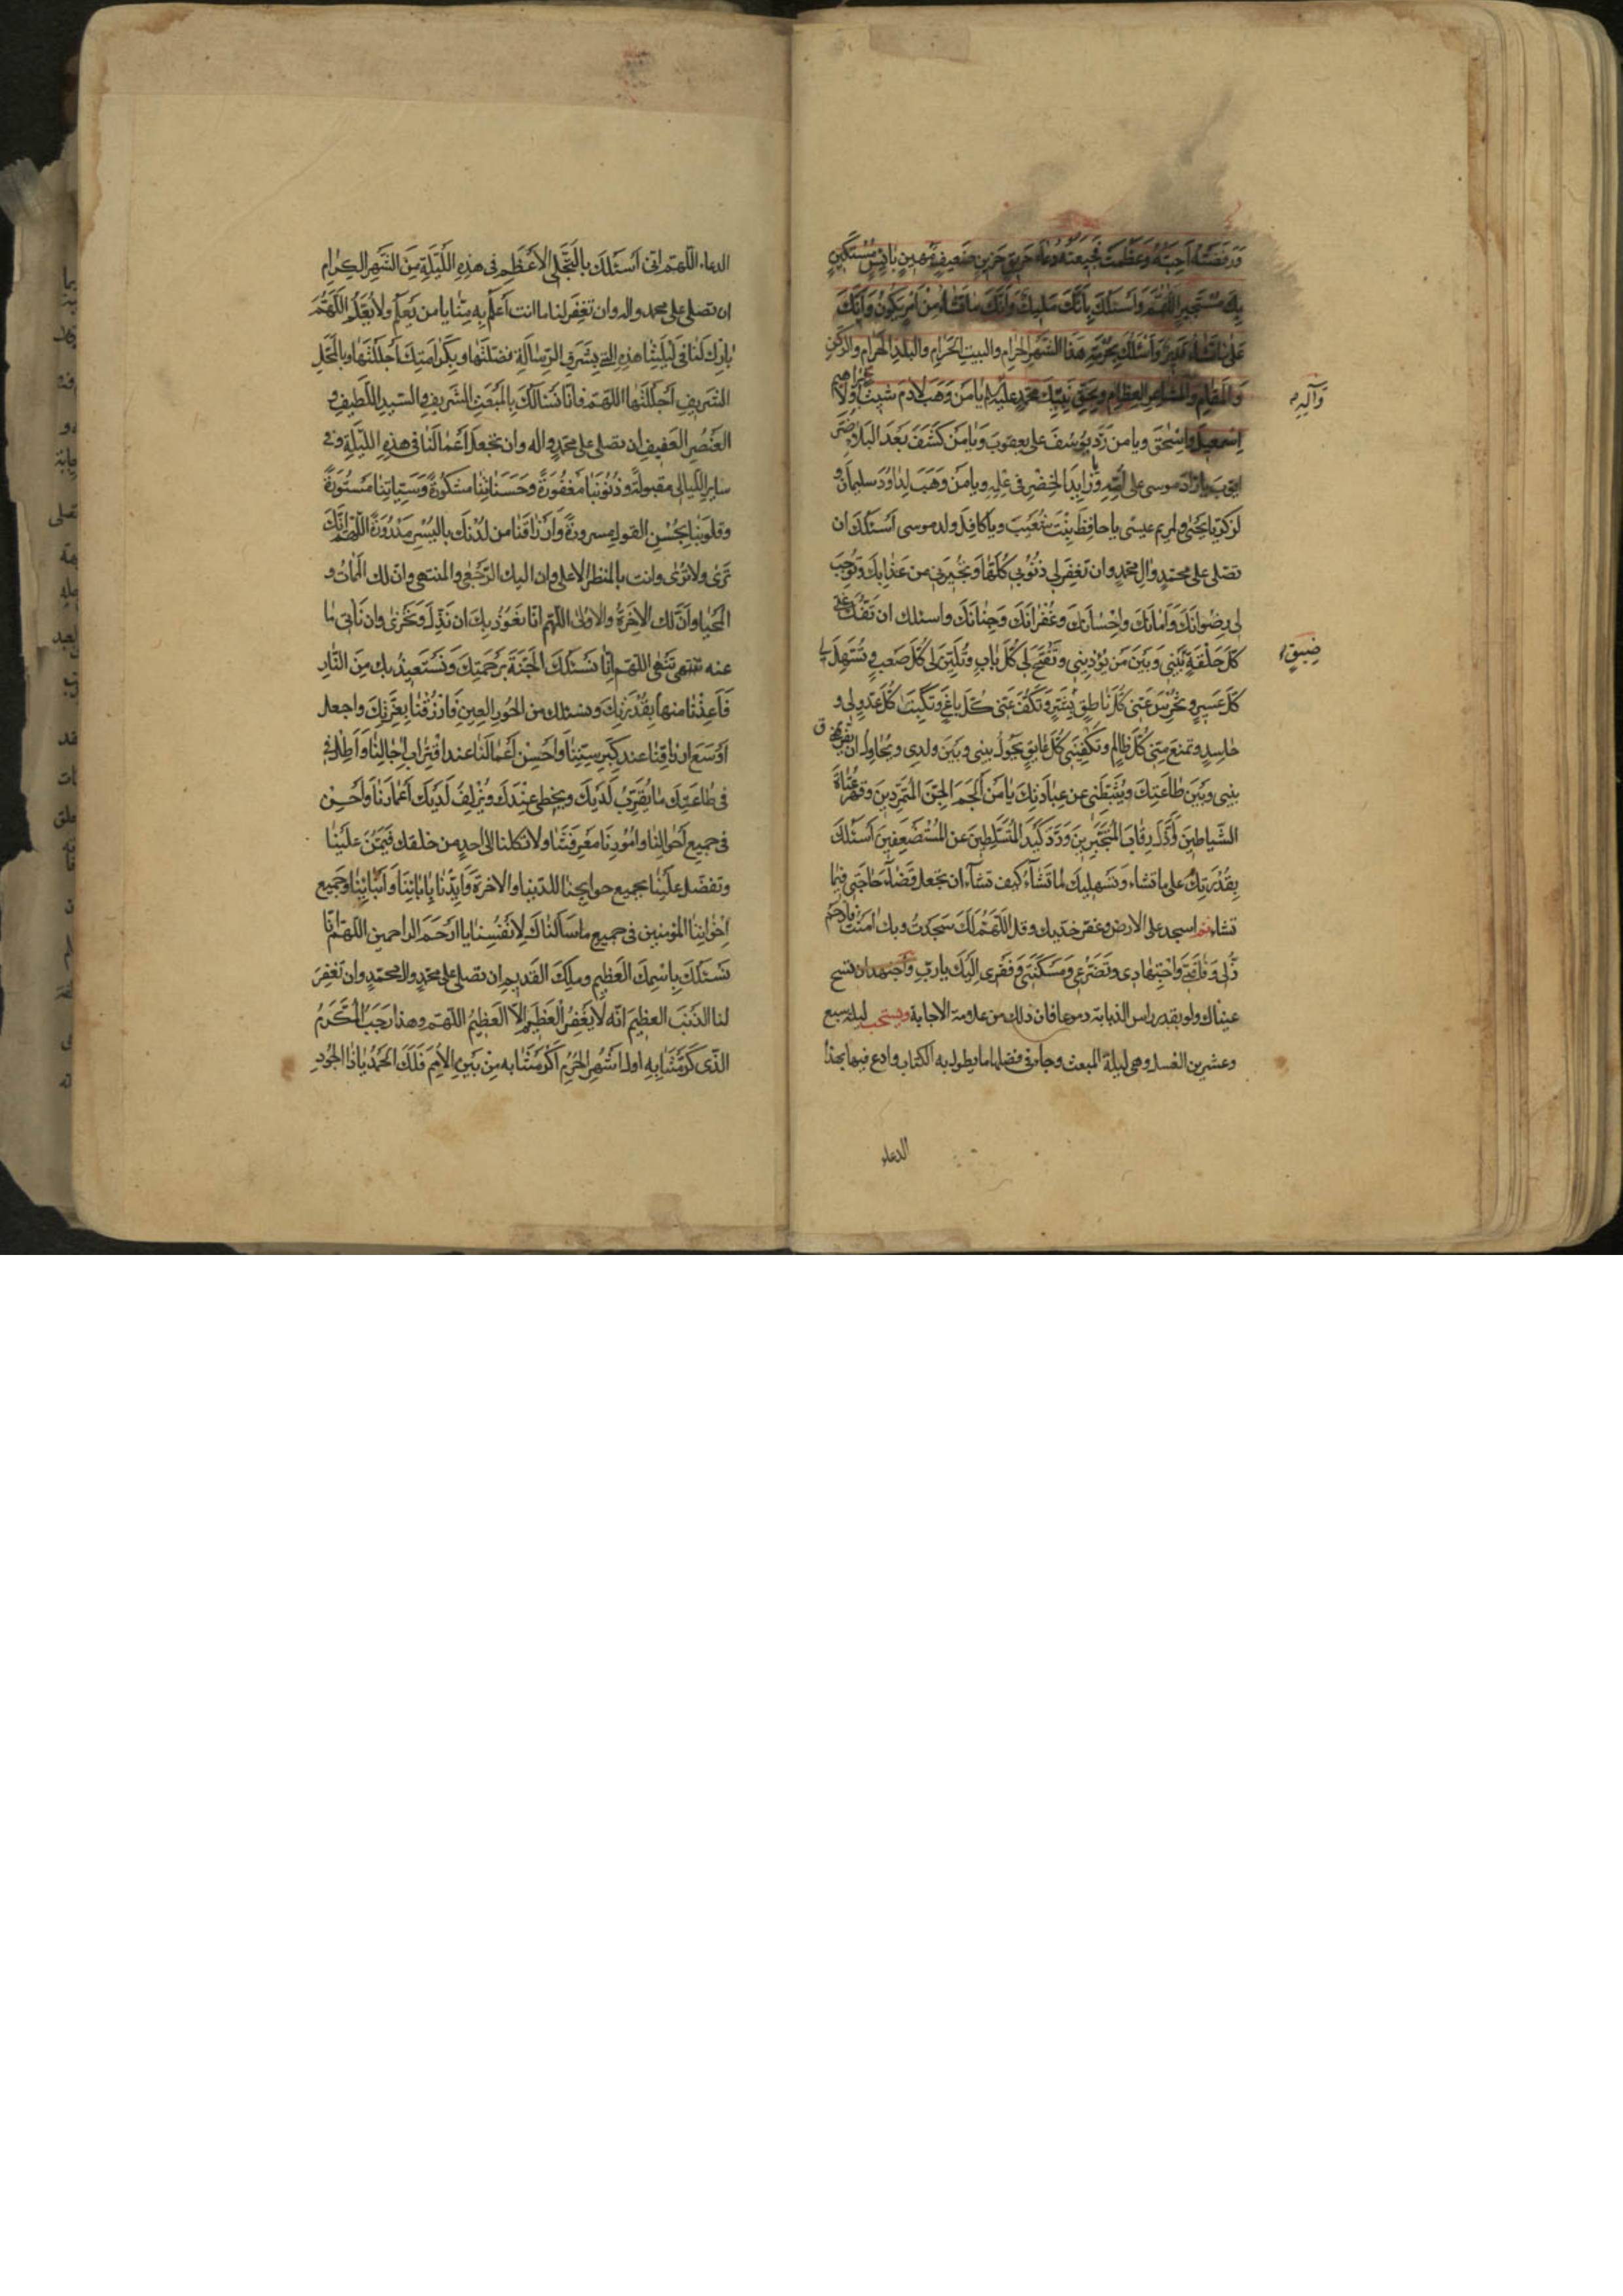 وَرَفَضَتْهُ اَحِبَّتُهُ وَعَظُمَتْ فَجِيعَتُهُ دُعَاءَ حَرِقٍ حَزِينٍ ضَعِيفٍ مَهِينٍ بَائِسٍ مُسْتَكِينٍ
بِكَ مُسْتَجِيرٍ اللّهُمَّ وَاَسْئَلُكَ بِاَنَّكَ مَلِيكٌ وَاَنَّكَ مَا تَشَاءُ مِنْ اَمْرٍ يَكُونُ وَاَنَّكَ
عَلى مَا تَشَاءُ قَدِيرٌ وَاَسْئَلُكَ بِحُرْمَةِ هَذَا الشَّهْرِ الحَرَامِ والبيتِ الحَرَامِ والبلدِ الحَرَامِ والرُّكْنِ
وَالمَقَامِ وَالمَشَاعِرِ العِظَامِ وبِحَقِّ نَبِيِّكَ مُحَمَّدٍ عليه السلام يَا مَنْ وَهَبَ لادَمَ شيث وَلِاِبْرَاهِيمَ
وآله م
اِسْمعِيلَ وَاِسْحقَ ويا من رَدَّ يُوسُفَ على يعقوبَ وَيَا مَنْ كَشَفَ بَعْدَ البَلاءِ ضُرَّ
ايوبَ يا رَادَّ موسى على اُمِّهِ وَزَايِدَ الخِضْرِ في عِلْمِهِ ويا مَنْ وَهَبَ لِدَاوُدَ سليمانَ و
لزكريّا يَحْيى ولمريم عيسى يا حافِظَ بِنْتِ شُعَيْبٍ ويا كافِلَ ولد موسى اَسْئَلُكَ ان
تصَلى على محمّدٍ والِ محمّدٍ وان تَغْفِرَ لي ذنُوبي كُلَّهَا وَتُجِيرَني من عَذَابِكَ وَتُوجِبَ
لي رِضْوَانَكَ وَاَمَانَكَ وَاِحْسَانَكَ وَغُفْرَانَكَ وَجِنَانَكَ واسئلك ان تَفُكَّ عَنّى
كُلَّ حَلْقَةٍ بَيْنِي وَبَيْنَ مَنْ يُؤْذِينِي وَتَفْتَحَ لي كُلَّ بَابٍ وَتُلَيِّنَ لي كُلَّ صَعْبٍ وَتُسَهِّلَ لي
ضِيقٍ
كُلَّ عَسِيرٍ وَتُخْرِسَ عَنّي كُلَّ نَاطِقٍ بِشَرٍّ وَتَكُفَّ عَنّي كُلَّ بَاغٍ وَتَكْبِتَ كُلَّ عَدُوٍّ لِي و
حَاسِدٍ وتمنعَ مِنّي كُلَّ ظَالِمٍ وَتَكْفِيَنِي كُلَّ عَائِقٍ يَحُولُ بيني وبَيْنَ ولدي ويُحَاوِلُ ان يُفَرِّقَ
بيني وبَيْنَ طَاعَتِكَ وَيُثَبِّطَنِي عن عِبَادَتِكَ يَا مَنْ اَلْجَمَ الجِنَّ المُتَمَرِّدِينَ وقَهَرَ عُتَاةَ
الشّياطينِ وَاَذَلَّ رِقَابَ المُتَجَبِّرِينَ وَرَدَّ كَيْدَ المُتَسَلِّطِينَ عن المُسْتَضْعَفِينَ اَسْئَلُكَ
بِقُدْرَتِكَ على ما تشاء وَتَسْهِيلِكَ لما تَشَاءُ كيف تشاءُ ان تجعل قَضَاءَ حَاجَتِي فِيمَا
تشاء ثم اسجد على الارض وعفّر خدّيك وقل اَللّهُمَّ لَكَ سَجَدْتُ وبِكَ امَنْتُ فَارْحَمْ
ذُلّي وَفَاقَتِي وَاجْتِهَادِي وتَضَرُّعِي وَمَسْكَنَتِي وَفَقْرِي اِلَيْكَ يا ربِّ وَاجتهد ان تسح
عيناك ولو بقدر راس الذبابة دموعا فان ذلك من علامة الاجابة ويستحب ليلة سبع
وعشرين الغسل وهى ليلة المبعث وجاء في فضلها ما يطول به الكتاب وادع فيها بهذا
الدعاء
الدعاء اللّهمّ انى اَسْئَلُكَ بالتَّجَلِّي الاَعْظَمِ فى هذهِ اللَّيْلَةِ مِنَ الشَّهْرِ الكِرامِ
ان تصَلى على محمد واله وان تَغْفِرَ لنا ما انت اَعْلَمُ بِهِ مِنَّا يا من يَعْلَمُ ولا يُعَلَّمُ اللّهُمَّ
بَارِكْ لَنَا فى لَيْلَتِنَا هذهِ الّتى بِشَرَفِ الرِّسَالَةِ فضّلتَها وبِكَرامَتِكَ اَجْلَلْتَهَا وبالمَحَلِّ
الشّريفِ اَحْلَلْتَهَا اللّهمّ فانّا نَسْاَلُكَ بِالمَبْعَثِ الشَّرِيفِ والسّيّدِ اللَّطِيفِ و
العُنْصُرِ العَفِيفِ ان تصَلى على محمّدٍ واله وان تجعلَ اَعْمَالَنَا فى هذهِ اللّيْلَةِ وفى
سايرِ اللّيالى مقبولةً وذُنُوبَنَا مَغْفُورَةً وحَسَنَاتِنَا مشكُورَةً وَسَيِّئاتِنَا مَسْتُورَةً
وقلوبَنَا بِحُسْنِ القولِ مسرورةً وَاَرْزاقَنَا من لَدُنْكَ بِاليُسْرِ مَدْرُورَةً اللّهمّ اِنَّكَ
تَرى ولا تُرى وانت بالمنظرِ الاعلى وان اليك الرُّجْعى والمنتهى وانّ لك المَمَاتُ و
المَحْيَا وَاَنَّ لك الاخِرَةُ والاولى اللّهم انّا نَعُوذُ بِكَ ان نَذِلَّ وَنَخْزى وان نَأْتى مَا
عنه تنهى اللّهمّ اِنَّا نَسْئَلُكَ الجَنَّةَ بِرَحْمَتِكَ وَنَسْتَعِيذُ بك مِنَ النَّارِ
فَاَعِذْنَا منها بِقُدْرَتِكَ ونسئلك من الحُورِ العِينِ فَارْزُقْنَا بِعِزَّتِكَ واجعل
اَوْسَعَ ارزاقِنَا عند كِبَرِ سِنِّنَا وَاَحْسَنَ اَعْمَالَنَا عند اقْتِرَابِ اجَالِنَا وَاَطِلْ فى
فى طَاعَتِكَ مَا يُقَرِّبُ لَدَيْكَ ويحظى عِنْدَكَ وَيُزْلِفُ لَدَيْكَ اَعْمَارَنَا وَاَحْسِنْ
فى جميع اَحْوالِنَا وامُورِنَا مَعْرِفَتَنَا ولا تكلنا الى احدٍ من خلقك فَيَمُنَّ عَلَيْنَا
وتفضّل علَيْنَا بجميع حوايجنا للدّنيا والاخرة وَابدَأْ بِابَائِنَا وَاَبْنَائِنَا وجَمِيعِ
اِخْوَانِنَا المؤمنين فى جميع ما سَاَلْنَاكَ لِاَنْفُسِنَا يا اَرْحَمَ الراحمين اللّهمّ انّا
نَسْئَلُكَ بِاسْمِكَ العَظِيمِ ومُلْكِكَ القَدِيمِ ان تصلى على محمّدٍ وال محمّدٍ وان تَغْفِرَ
لنا الذّنبَ العظيمَ انّه لا يَغْفِرُ العَظِيمَ اِلاّ العَظِيمُ اللّهمّ وهذا رَجَبُ المُكَرَّمُ
الّذى كَرَّمْتَنَا بِهِ اولُ اشْهُرِ الحُرُمِ اَكْرَمْتَنَا بِه مِنْ بَيْنِ الاُمَمِ فَلَكَ الحَمْدُ يا ذَا الجُودِ